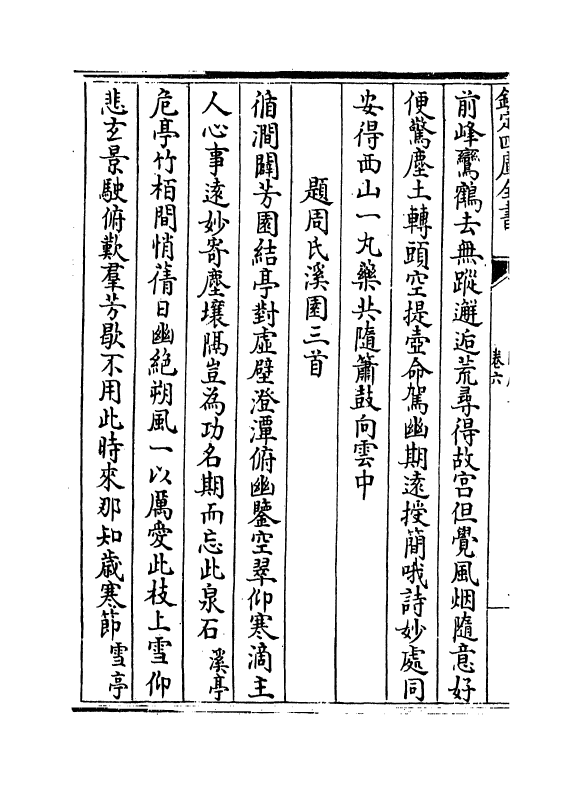 欽定四庫全書
卷六
前峰鸞鶴去無蹤邂逅荒尋得故宫但覺風烟隨意好
便驚塵土轉頭空提壺命駕幽期逺授簡哦詩妙處同
安得西山一丸藥共隨簫鼓向雲中
題周氏溪園三首
循澗闢芳園結亭對虛壁澄潭俯幽鑒空翠仰寒滴主
人心事逺妙寄塵壤隔豈為功名期而忘此泉石 溪亭
危亭竹栢間悄蒨日幽絶朔風一以厲愛此枝上雪仰
悲玄景駛俯歎羣芳歇不用此時來那知歲寒節 雪亭